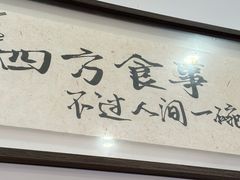 四方食事
不过人间一碗